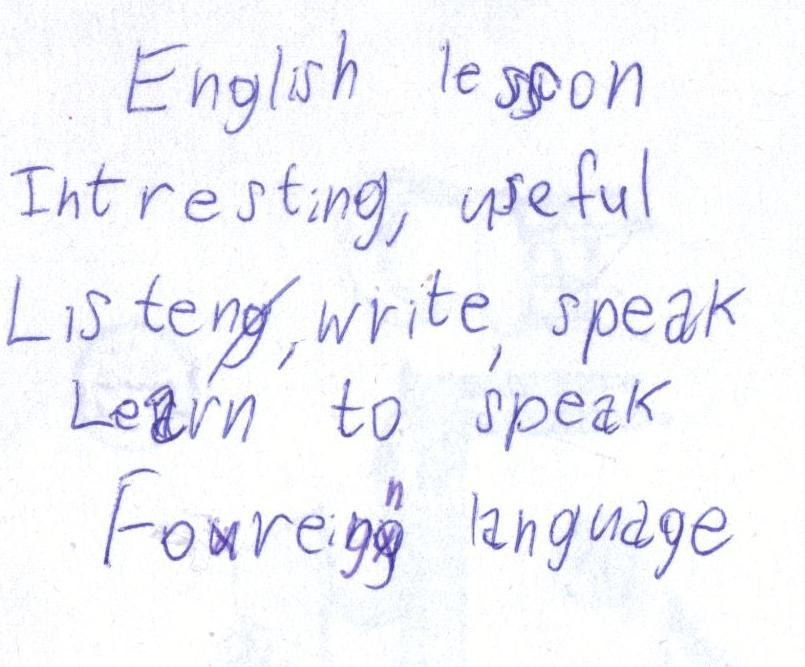 English lesson
Intresting, useful
Listen, write, speak
Learn to speak
Foreign language